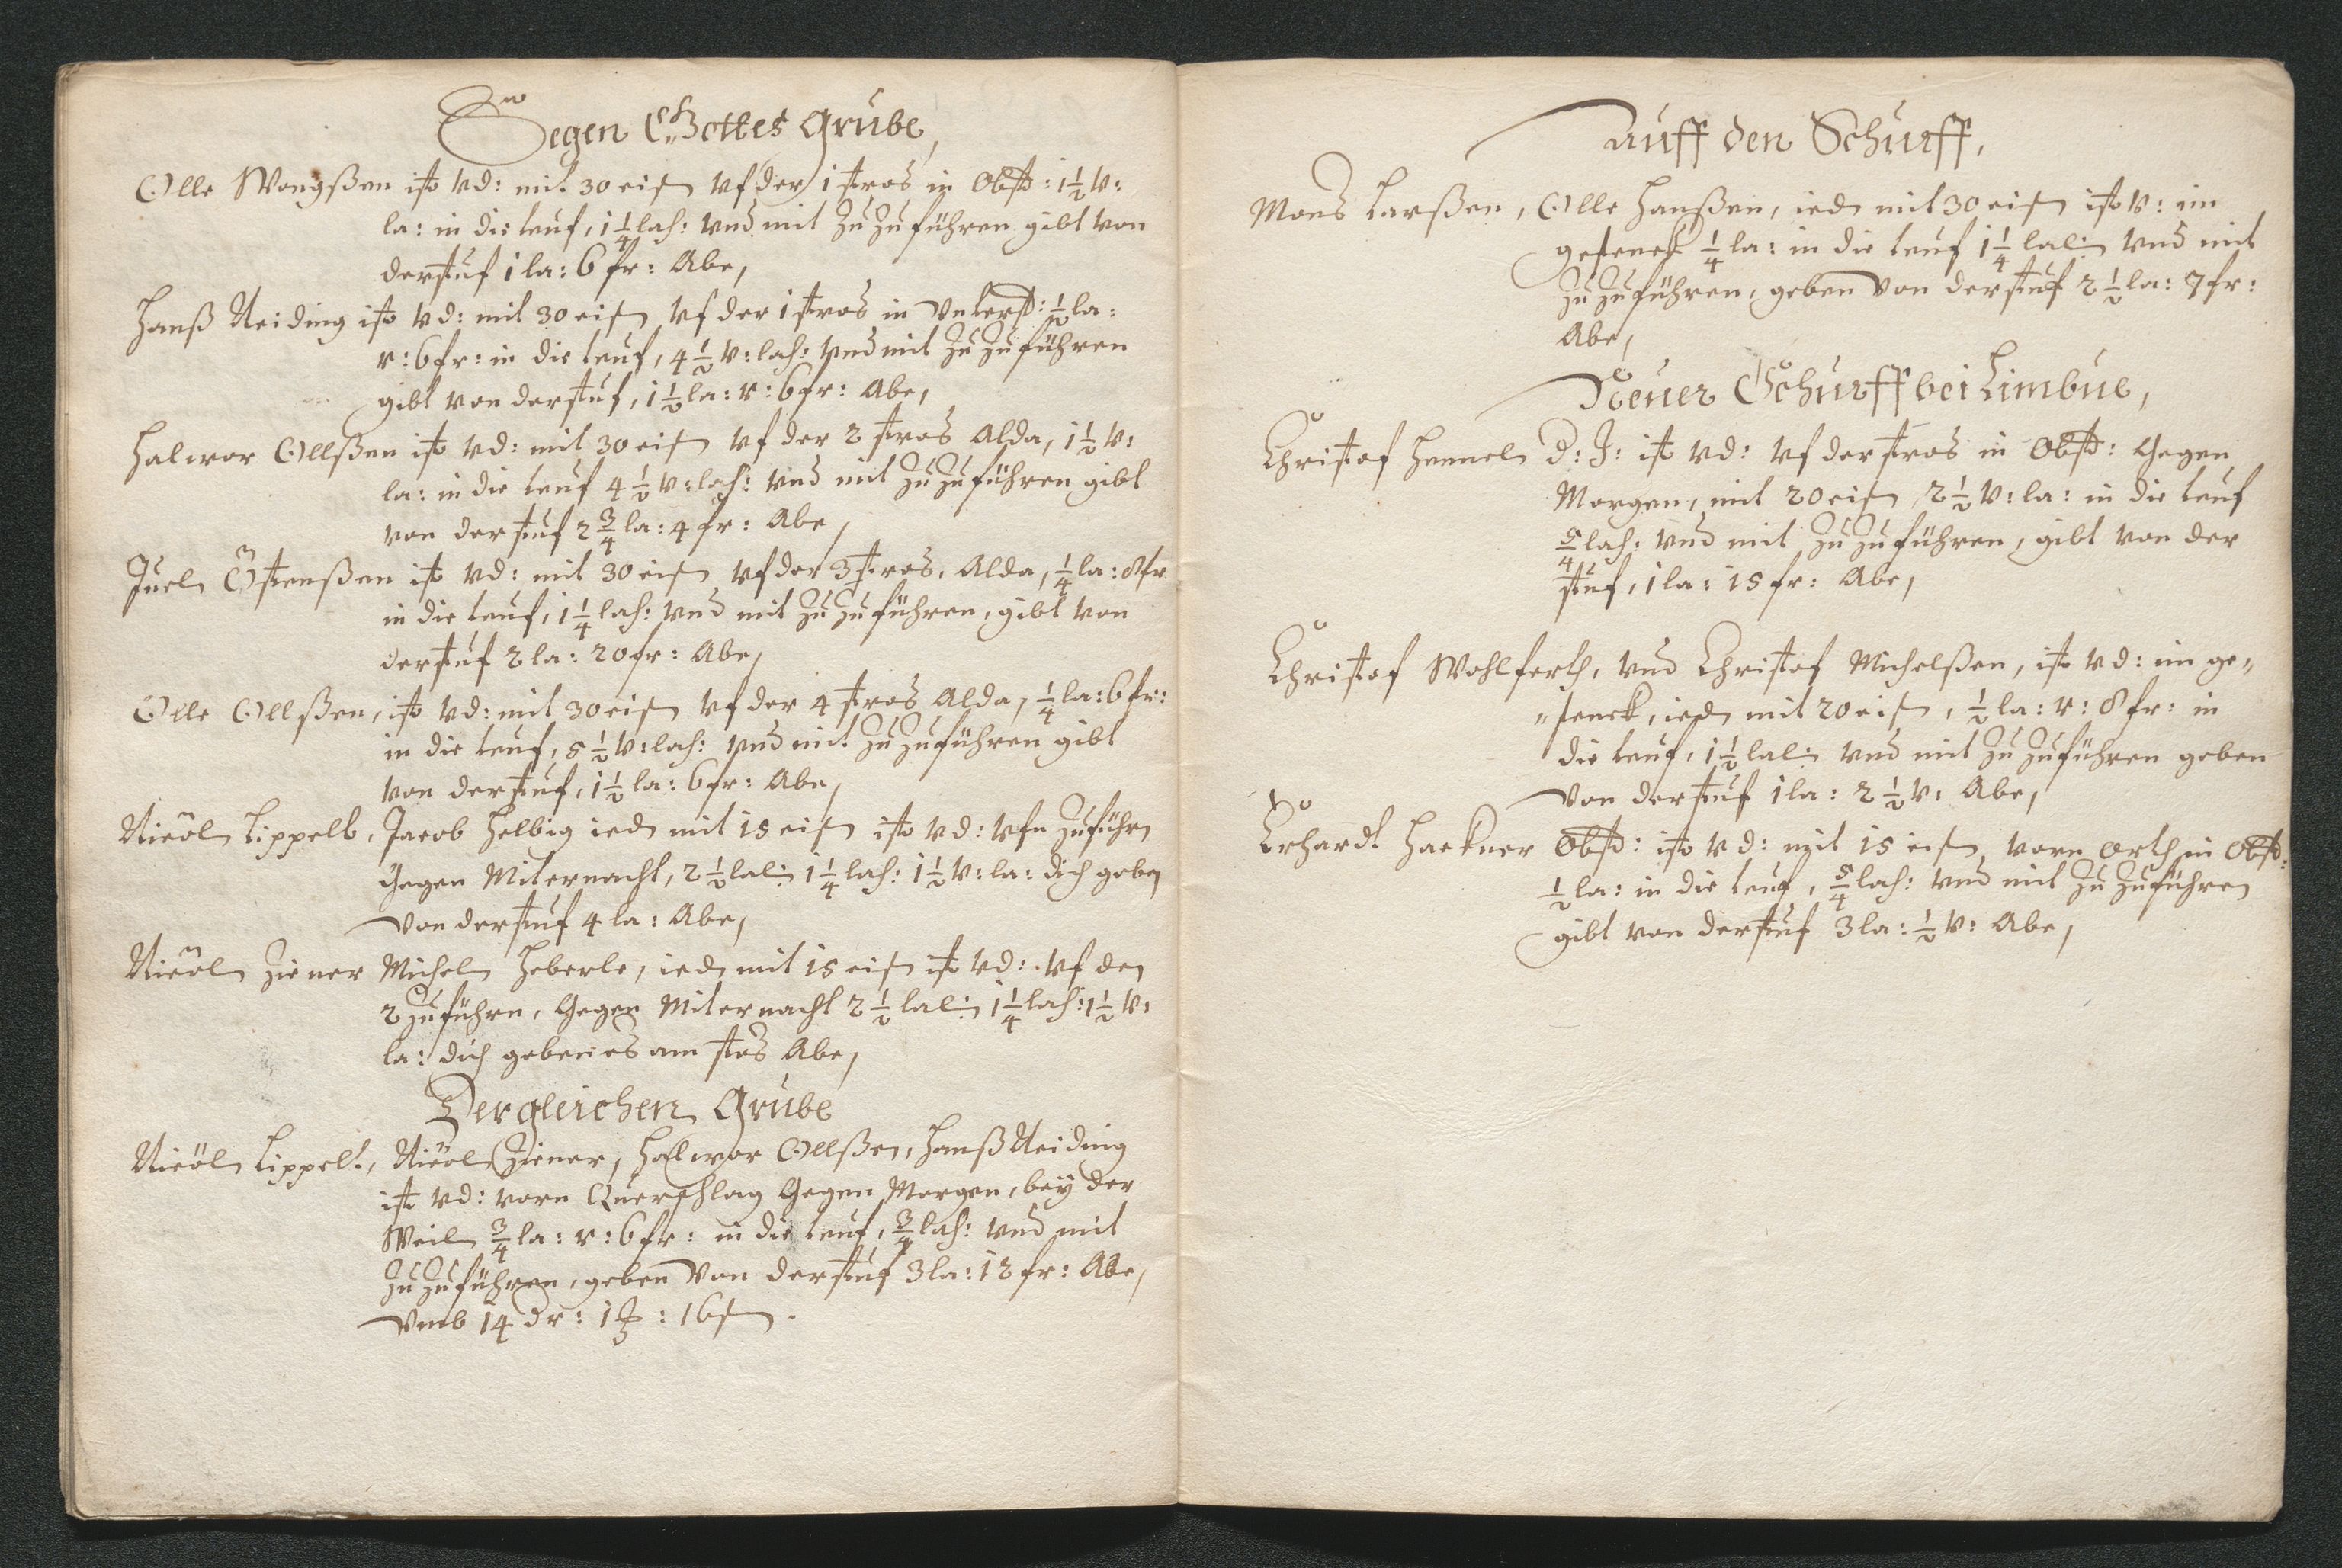 Segen Gottes Grube,
Olle Mongßen ist vd: mit 30 eisen vf der 1 stros in Obst: 1½ v:
la: in die teuf, 1¼ lach: vnd mit zu zuführen gibt von
der stuf 1 la: 6 fr: Abe,
Hanß Neiding ist vd: mit 30 eisen vf der 1 stros in Vnterst: ½ la:
v: 6 fr: in die teuf, 4½ v: lach: vnd mit zu zuführen
gibt von der stuf, 1½ la: v: 6 fr: Abe,
Halwor Ollßen ist vd: mit 30 eisen vf der 2 stros Alda, 1½ v:
la: in die teuf 4½ v: lach: vnd mit zu zuführen gibt
von der stuf 2¾ la: 4 fr: Abe,
Juel Östenßen ist vd: mit 30 eisen vf der 3 stros, Alda, ¼ la: 8 fr
in die teuf, 1¼ lach: vnd mit zu zuführen, gibt von
der stuf 2 la: 20 fr: Abe,
Olle Ollßen, ist vd: mit 30 eisen vf der 4 stros Alda, ¼ la: 6 fr:
in die teuf, 5½ v: lach: vnd mit zu zuführen gibt
von der stuf, 1½ la: 6 fr: Abe,
Nicol Lippelt, Jacob Helbig ieder mit 15 eisen ist vd: vfn zuführn
Gegen Miternacht, 2½ lal: 1¼ lach: 1½ v: la: dich geben
Von der stuf 4 la: Abe,
Nicol Ziener Michel Heberle, ieder mit 15 eisen ist vd: vf den
2 zuführn, Gegen Miternacht 2½ lal: 1¼ lach: 1½ v:
la: dich geben es am stos Abe,
Dergleichen Grube
Nicol Lippelt, Nicol Ziener, Halwor Ollßen, Hanß Neiding
ist vd: vorn Querschlag Gegen Morgen, bey der
Weil ¾ la: v: 6 fr: in die teuf, ¾ lach: vnd mit
zu zuführen, geben Von der stuf 3 la: 12 fr: Abe,
Vmb 14 dr: 1 : 16
auff den Schurff,
Mons Larßen, Olle Hanßen, ieder mit 30 eisen ist v: im
gesenck ¼ la: in die teuf 1¼ lal: vnd mit
zu zuführen, geben Von der stuf 2½ la: 7 fr:
Abe,
Neuer Schurff bei Limbue,
Christof Hennel D: J: ist vd: vf der stros in Obst: Gegen
Morgen, mit 20 eisen 2½ v: la: in die teuf
5/4 lach: vnd mit zu zuführen, gibt von der
stuf, 1 la: 15 fr: Abe,
Christof Wohlferth, vnd Christof Michelßen, ist vd: im ge„
„senck, ieder mit 20 eisen, ½ la: v: 8 fr: in
die teuf, 1½ lal: vnd mit zu zuführen geben
Von der stuf 1 la: 2½ v: Abe,
Erhardt Hackner Obst: ist vd: mit 15 eisen vorn Orth in Obst:
½ la: in die teuf, 5/4 lach: vnd mit zu zuführen
gibt von der stuf 3 la: ½ v: Abe,